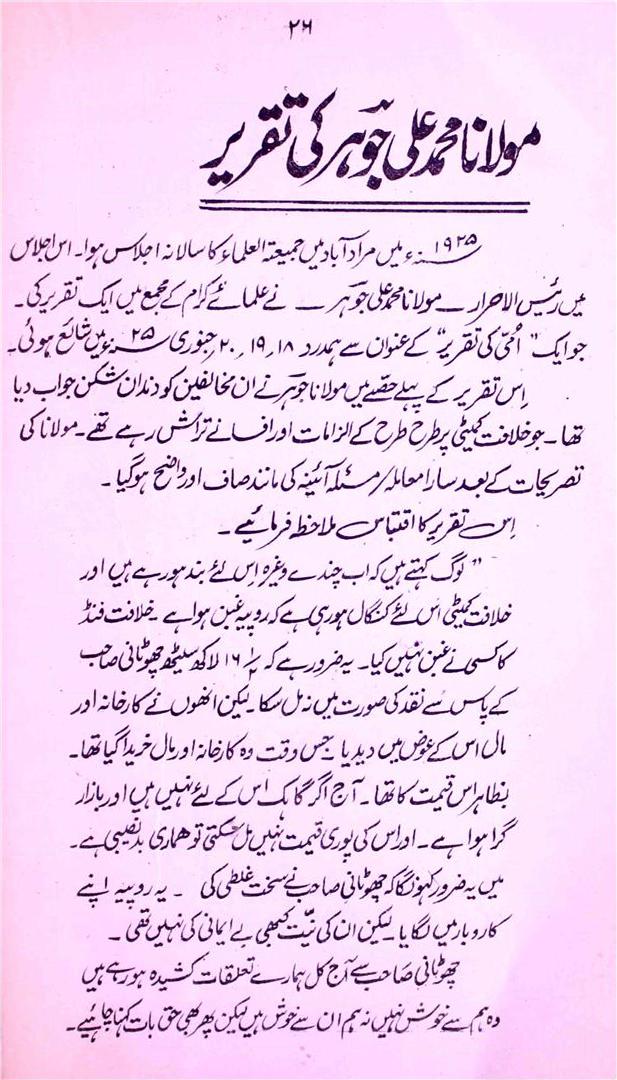 ۲۶
مولانا محمد علی جوہر کی تقریر
۱۹۲۵ء میں مرادآباد میں جمیعۃ العلماء کا سالانہ اجلاس ہوا۔ اس اجلاس
میں رئیس الاحرار — مولانا محمد علی جوہر — نے علمائے کرام کے مجمع میں ایک تقریر کی۔
جو ایک "امّی کی تقریر" کے عنوان سے ہمدرد ۱۸، ۱۹، ۲۰ جنوری ۲۵ء میں شائع ہوئی۔
اِس تقریر کے پہلے حصّے میں مولانا جوہر نے ان مخالفین کو دندان شکن جواب دیا
تھا۔ جو خلافت کمیٹی پر طرح طرح کے الزامات اور افسانے تراش رہے تھے۔ مولانا کی
تصریحات کے بعد سارا معاملہ/مسئلہ آئینہ کی مانند صاف اور واضح ہوگیا۔
اِس تقریر کا اقتباس ملاحظہ فرمائیے۔
"لوگ کہتے ہیں کہ اب چندے وغیرہ اِس لئے بند ہو رہے ہیں اور
خلافت کمیٹی اس لئے کنگال ہو رہی ہے کہ روپیہ غبن ہوا ہے۔ خلافت فنڈ
کا کسی نے غبن نہیں کیا۔ یہ ضرور ہے کہ ۱۶ ۱/۲ لاکھ سیٹھ چھوٹانی صاحب
کے پاس سے نقد کی صورت میں نہ مل سکا۔ لیکن انھوں نے کارخانہ اور
مال اس کے عوض میں دیدیا۔ جس وقت وہ کارخانہ اور مال خریدا گیا تھا۔
بظاہر اس قیمت کا تھا۔ آج اگر گاہک اس کے لئے نہیں ہیں اور بازار
گرا ہوا ہے۔ اور اس کی پوری قیمت نہیں مل سکتی تو ہماری بدنصیبی ہے۔
میں یہ ضرور کہونگا کہ چھوٹانی صاحب نے سخت غلطی کی۔ یہ روپیہ اپنے
کاروبار میں لگایا۔ لیکن ان کی نیّت کبھی بے ایمانی کی نہیں تھی۔
چھوٹانی صاحب سے آج کل ہمارے تعلقات کشیدہ ہو رہے ہیں
وہ ہم سے خوش نہیں نہ ہم ان سے خوش ہیں لیکن پھر بھی حق بات کہنا چاہیے۔